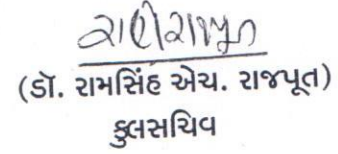 (ડૉ. રામસિંહ એચ. રાજપૂત)
કુલસચિવ